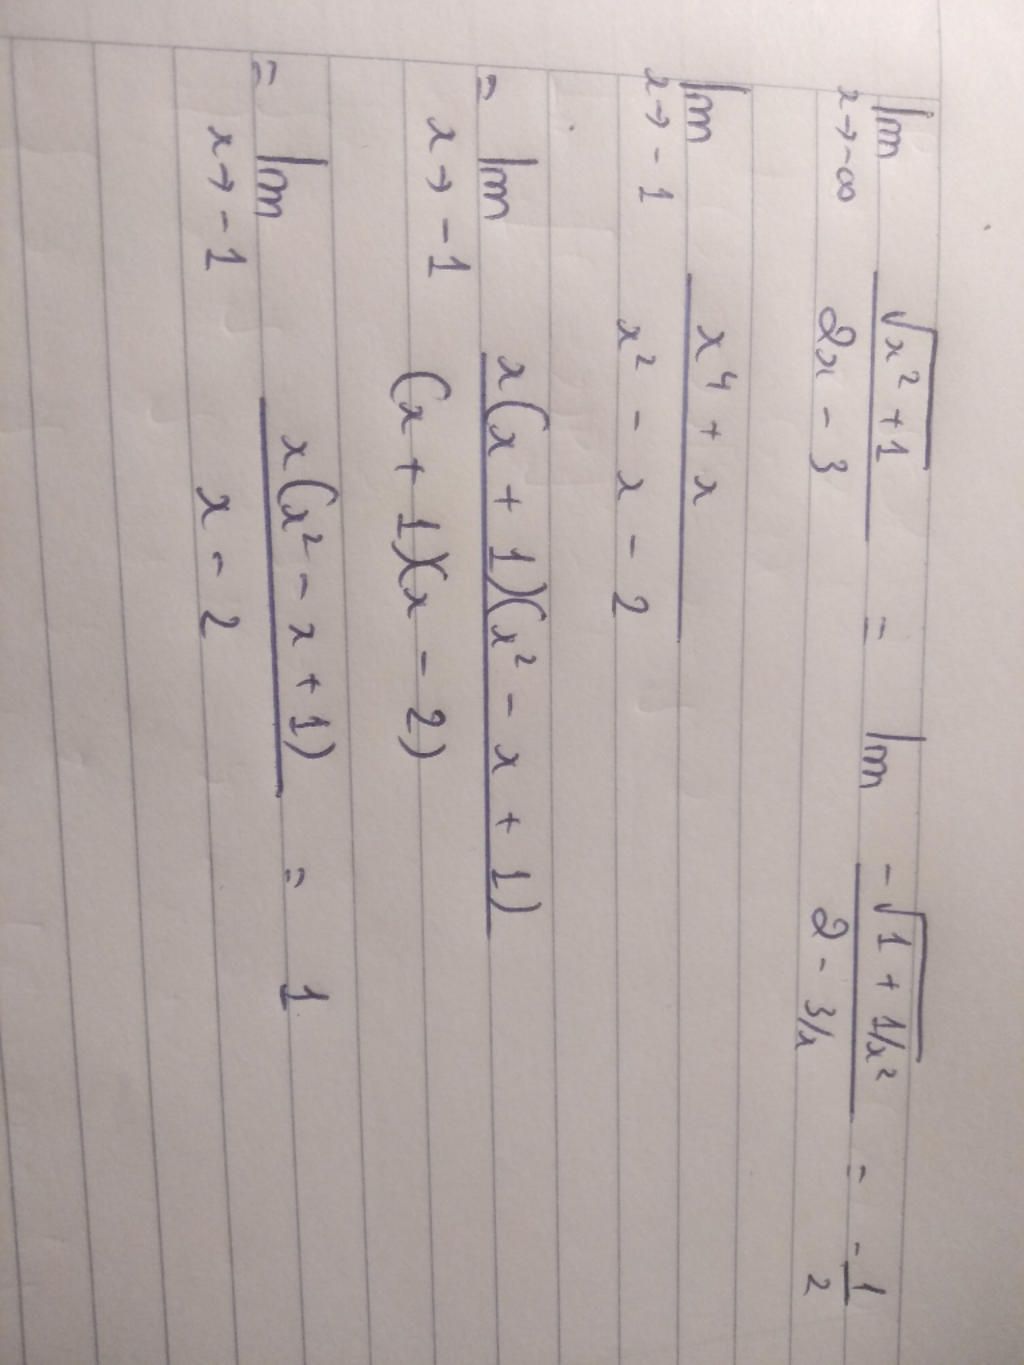 lim x→-∞ √(x² + 1) / (2x - 3) = lim -√(1 + 1/x²) / (2 - 3/x) = -1/2
lim x→-1 (x⁴ + x) / (x² - x - 2)
= lim x→-1 x(x + 1)(x² - x + 1) / (x + 1)(x - 2)
= lim x→-1 x(x² - x + 1) / (x - 2) = 1